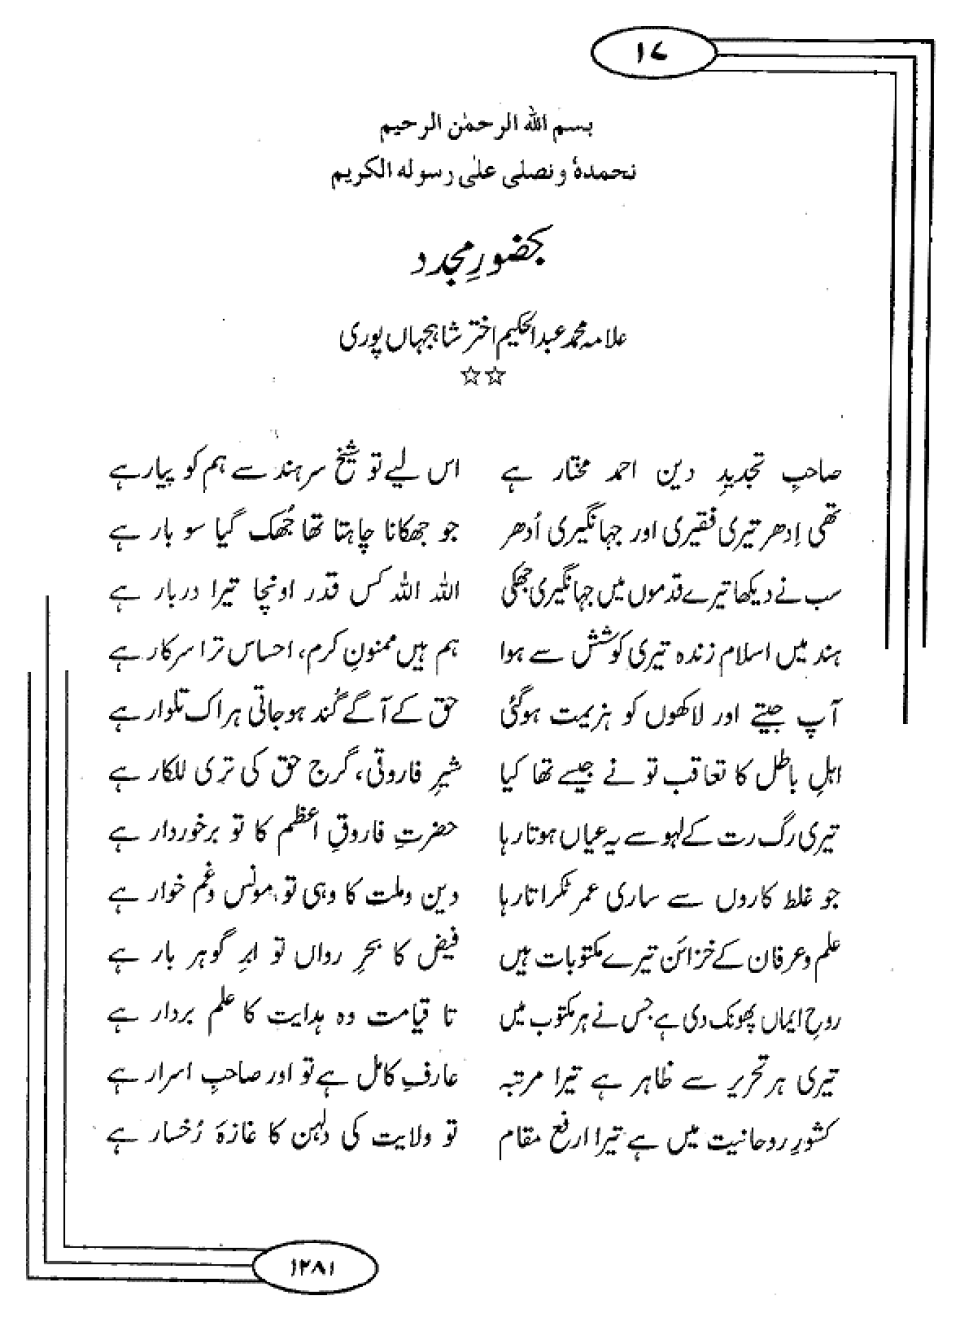 ۱۷
بسم الله الرحمٰن الرحیم
نحمدهٗ ونصلی علیٰ رسوله الکریم
بحضورِ مجدد
علامہ محمد عبدالحکیم اختر شاہجہاں پوری
☆☆
صاحبِ تجدیدِ دین احمد مختار ہے اس لیے تو شیخ سرہند سے ہم کو پیار ہے
تھی اِدھر تیری فقیری اور جہانگیری اُدھر جو جھکانا چاہتا تھا جُھک گیا سو بار ہے
سب نے دیکھا تیرے قدموں میں جہانگیری جھکی اللہ اللہ کس قدر اونچا تیرا دربار ہے
ہند میں اسلام زندہ تیری کوشش سے ہوا ہم ہیں ممنونِ کرم، احساس ترا سرکار ہے
آپ جیتے اور لاکھوں کو ہزیمت ہوگئی حق کے آگے کُند ہوجاتی ہر اک تلوار ہے
اہلِ باطل کا تعاقب تو نے جیسے تھا کیا شیرِ فاروقی، گرج حق کی تری للکار ہے
تیری رگ رت کے لہو سے یہ عیاں ہوتا رہا حضرتِ فاروقِ اعظم کا تو برخوردار ہے
جو غلط کاروں سے ساری عمر ٹکراتا رہا دین وملت کا وہی تو، مونس وغم خوار ہے
علم وعرفان کے خزائن تیرے مکتوبات ہیں فیض کا بحرِ رواں تو ابرِ گوہر بار ہے
روحِ ایماں پھونک دی ہے جس نے ہر مکتوب میں تا قیامت وہ ہدایت کا علم بردار ہے
تیری ہر تحریر سے ظاہر ہے تیرا مرتبہ عارفِ کامل ہے تو اور صاحبِ اسرار ہے
کشورِ روحانیت میں ہے تیرا ارفع مقام تو ولایت کی دلہن کا غازۂ رُخسار ہے
۱۲۸۱